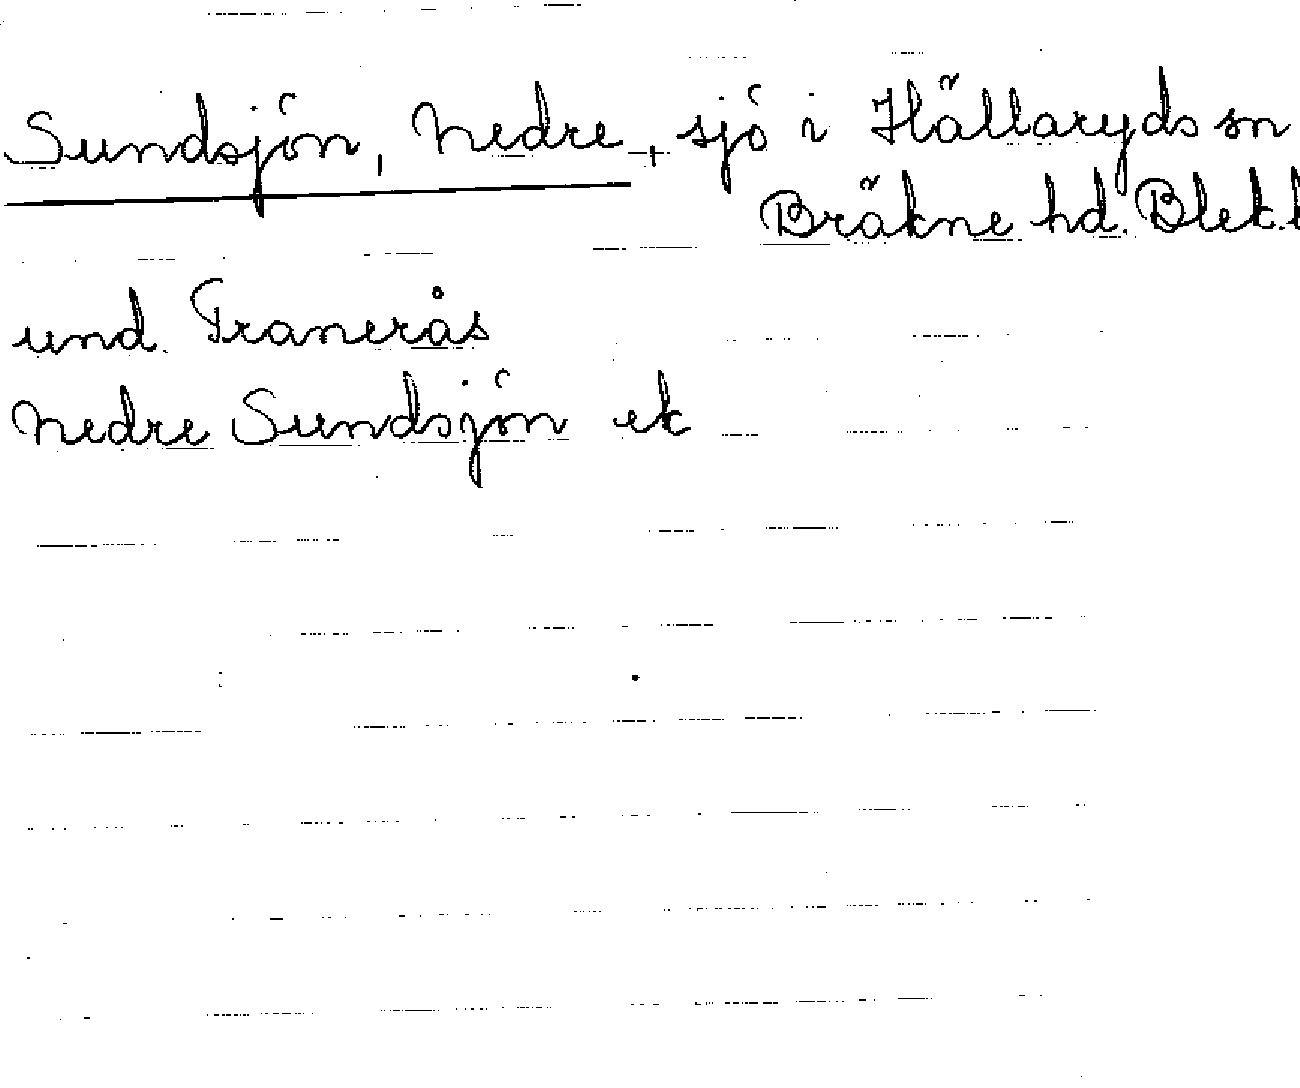 Sundsjön, Nedre, sjö i Hällaryds sn
Bräkne hd. Blek.l
und. Tranerås
Nedre Sundsjön ek